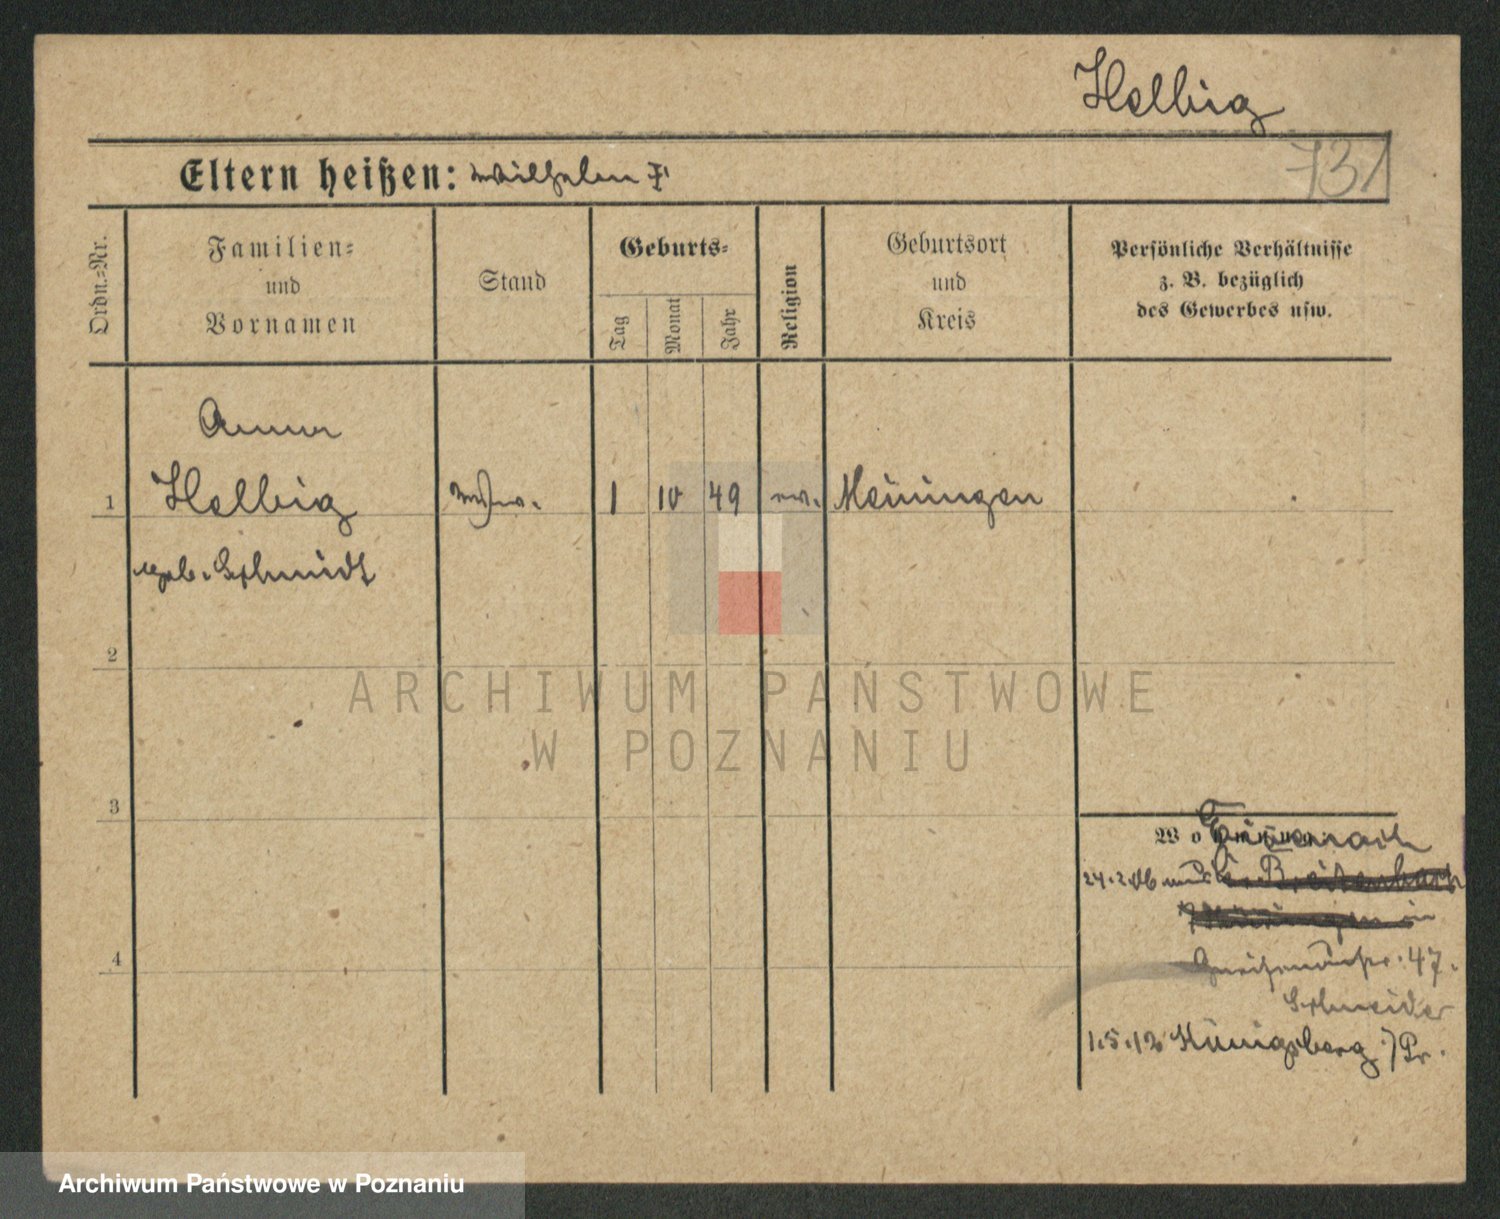 Helbig
731
Eltern heißen: Wilhelm F
Ordn.=Nr.
Familien=
und
Vornamen
Stand
Geburts=
Tag
Monat
Jahr
Religion
Geburtsort
und
Kreis
Persönliche Verhältnisse
z. B. bezüglich
des Gewerbes usw.
Anna
1 Helbig 1 10 49 ev. Meiningen
geb. Schmidt
2
ARCHIWUM PAŃSTWOWE
W POZNANIU
3
Eisenach
24.2.06
4
Gneisenaustr. 47.
Schneider
1.5.12 Königsberg i/Pr.
Archiwum Państwowe w Poznaniu